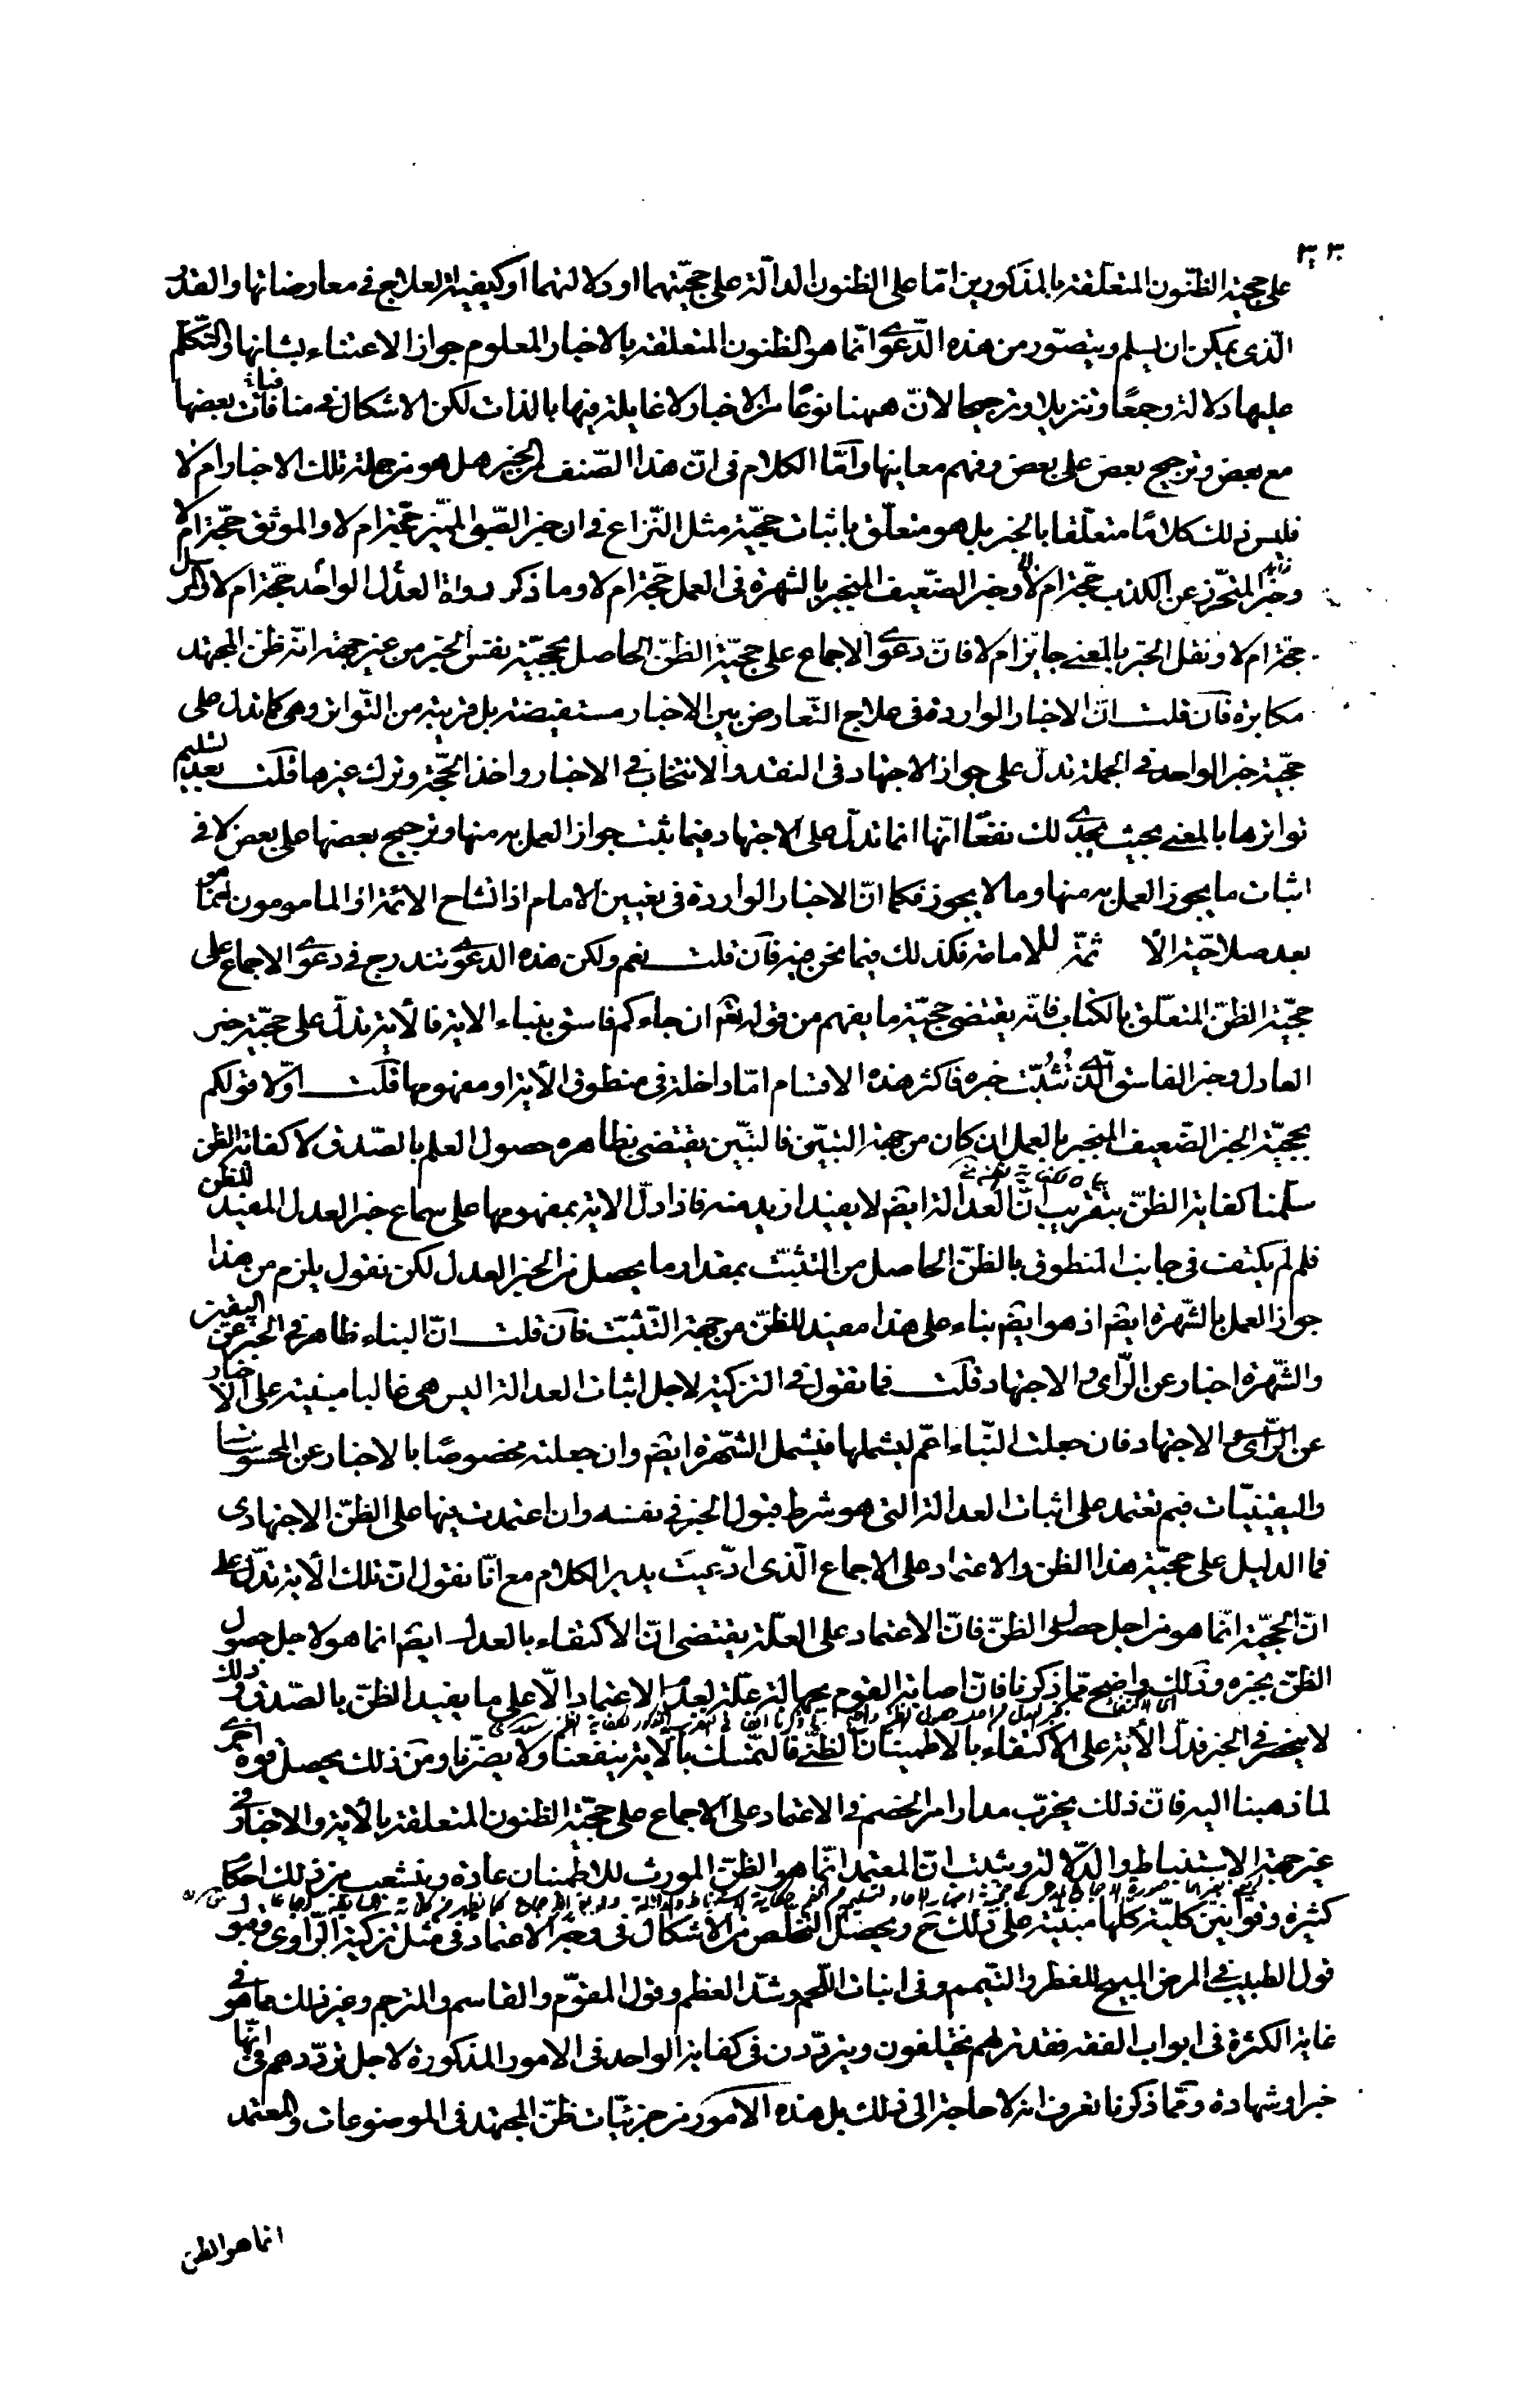 ٣٠٣
على حجية الظنون المتعلقة بالمذكورين امّا على الظنون الدالّة على حجيّتهما او دلالتهما او كيفية العلاج فى معارضاتها والقدر
الّذى يمكن ان يسلم ويتصوّر من هذه الدّعوى انّما هو الظنون المتعلقة بالاخبار المعلوم جواز الاعتناء بشانها والتّكلّم
عليها دلالة وجمعًا وتنزيلا وترجيحا لانّ ههنا نوعًا من الاخبار لا غايلة فيها بالذات لكن الاشكال فى منافات بعضها
مع بعض وترجيح بعض على بعض وفهم معاينها وامّا الكلام فى انّ هذا الصّنف من الخبر هل هو من جملة تلك الاخبار ام لا
فليس ذلك كلامًا متعلّقا بالخبر بل هو متعلّق باثبات حجيّته مثل النّزاع فى ان خبر الصّبى المميّز حجّة ام لا والموثق حجّة ام لا
وخبر المتحرّز عن الكذب حجّة ام لا وخبر الضّعيف المنجبر بالشهرة فى العمل حجّة ام لا وما ذكر رواة العدل الواحد حجّة ام لا والمرسل
حجّة ام لا ونقل الخبر بالمعنى جايز ام لا فانّ دعوى الاجماع على حجيّة الظنّ الحاصل بحجيّة نفس الخبر من غير جهة انّه ظن المجتهد
مكابرة فان قلت انّ الاخبار الواردة فى علاج التّعارض بين الاخبار مستفيضة بل قريبة من التّواتر وهى كما تدل على
حجيّة خبر الواحد فى الجملة تدلّ على جواز الاجتهاد فى النقد والانتخاب فى الاخبار واخذ الحجّة وترك غيرها قلت بعد تسليم
تواترها بالمعنى بحيث يجدى لك نفعًا انّها انما تدلّ على الاجتهاد فيما يثبت جواز العمل به منها وترجيح بعضها على بعض لا فى
اثبات ما يجوز العمل به منها وما لا يجوز فكما انّ الاخبار الواردة فى تعيين الامام اذا تشاح الائمة او المامومون انما هو
بعد صلاحيّة الائمّة للامامة فكذلك فيما نحن فيه فان قلت نعم ولكن هذه الدعوى تندرج فى دعوى الاجماع على
حجيّة الظنّ المتعلّق بالكتاب فانّه يقتضى حجيّة ما يفهم من قوله تعم ان جاءكم فاسق بنباء الاية فالاية تدلّ على حجيّة خبر
العادل وخبر الفاسق الّذى تثبّت خبره فاكثر هذه الاقسام امّا داخلة فى منطوق الاية او مفهومها قلت اوّلا قولكم
بحجيّة الخبر الضّعيف المنجبر بالعمل ان كان من جهة التبيّن فالتبيّن يقتضى بظاهره حصول العلم بالصّدق لا كفاية الظن
سلّمنا كفاية الظنّ بتقريب انّ العدالة ايضم لا يفيد ازيد منه فاذا دلّ الاية بمفهومها على سماع خبر العدل المفيد للظن
فلم لم يكتف فى جانب المنطوق بالظنّ الحاصل من التثبّت بمقدار ما يحصل من الخبر العدل لكن نقول يلزم من هذا
جواز العمل بالشّهرة ايضم اذ هو ايضم بناء على هذا مفيد للظنّ من جهة التّثبّت فان قلت انّ البناء ظاهر فى الخبر عن اليقين
والشّهرة اخبار عن الرّاى والاجتهاد قلت فما نقول فى التزكية لاجل اثبات العدالة اليس هى غالبا مبنية على الاخبار
عن الرّاى والاجتهاد فان جعلت النّباء اعمّ ليشملها فيشمل الشّهرة ايضم وان جعلته مخصوصًا بالاخبار عن المحسوسات
واليقينيّات فبم تعتمد على اثبات العدالة التى هو شرط قبول الخبر فى نفسه وان اعتمدت فيها على الظنّ الاجتهادى
فما الدليل على حجيّة هذا الظن والاعتماد على الاجماع الّذى ادّعيت يدير الكلام مع انّا نقول انّ تلك الاية تدلّ على
انّ الحجيّة انّما هو من اجل حصول الظنّ فانّ الاعتماد على العلّة يقتضى انّ الاكتفاء بالعدل ايضم انما هو لاجل حصول
الظنّ بخبره وذلك واضح ممّا ذكرنا فانّ اصابة القوم بجهالة علّة لعدم الاعتماد الّا على ما يفيد الظنّ بالصّدق وذلك
لا ينحصر فى الخبر فدلّ الاية على الاكتفاء بالاطمينان الظنّى فالتمسّك بالاية ينفعنا ولا يضرّنا ومن ذلك يحصل قوة اخرى
لما ذهبنا اليه فانّ ذلك يخرّب مدار امر الخصم فى الاعتماد على الاجماع على حجيّة الظنون المتعلقة بالاية والاخبار فى
غير جهة الاستنباط والدّلالة ويثبت انّ المعتمد انّما هو الظنّ المورث للاطمينان عادة وينشعب من ذلك احكام
كثيرة وقوانين كليّة كلها مبنيّة على ذلك ح ويحصل التخلّص من الاشكال فى وجه الاعتماد فى مثل تزكية الرّاوى وقبول
قول الطبيب فى المرض المبيح للفطر والتيمم وفى انبات اللّحم وشدّ العظم وقول المقوّم والقاسم والمترجم وغير ذلك مما هو فى
غاية الكثرة فى ابواب الفقه فقد تريهم يختلفون ويتردّدن فى كفاية الواحد فى الامور المذكورة لاجل تردّدهم فى انّها
خبر او شهادة وممّا ذكرنا تعرف انه لا حاجة الى ذلك بل هذه الامور من جزئيّات ظنّ المجتهد فى الموضوعات والمعتمد
انما هو الظن